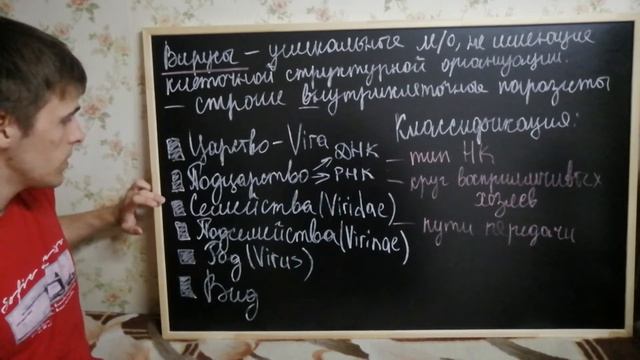 Вирусы – уникальные м/о, не имеющие
клеточной структурной организации.
– строгие внутриклеточные паразиты
Классификация:
Царство – Vira
Подцарство → ДНК
→ РНК
Семейства (Viridae)
Подсемейства (Virinae)
Род (Virus)
Вид
– тип НК
– круг восприимчивых
хозяев
– пути передачи